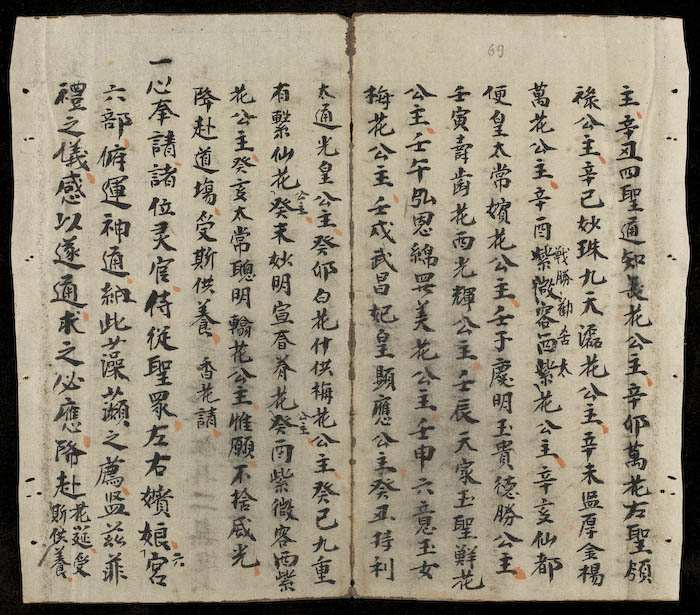 69
主辛丑四聖通知長花公主辛卯萬花左聖領
祿公主辛巳妙珠九天灜花公主辛未盁厚金楊
萬花公主辛酉紫微容西紫花公主辛亥仙都
戰勝勸舍太
便皇太常嬪花公主壬子慶明玉貴德勝公主
壬寅壽齒花西光輝公主壬辰天家玉聖鮮花
公主壬午弘恩綿世美花公主壬申六意玉女
梅花公主壬戌武昌妃皇顯應公主癸丑特利
太通光皇公主癸卯白花什供梅花公主癸巳九重
有繫仙花公主癸未妙明宣眷脊花公主癸酉紫微容西紫
花公主癸亥太常聰明輪花公主惟願不捨威光
降赴道場受斯供養 香花請
一心奉請諸位灵官侍從聖眾左右嬪娘六宮
六部俯運神通納此藻蘋之薦盁茲菲
禮之儀感以遂通求之必應降赴花筵受
斯供養